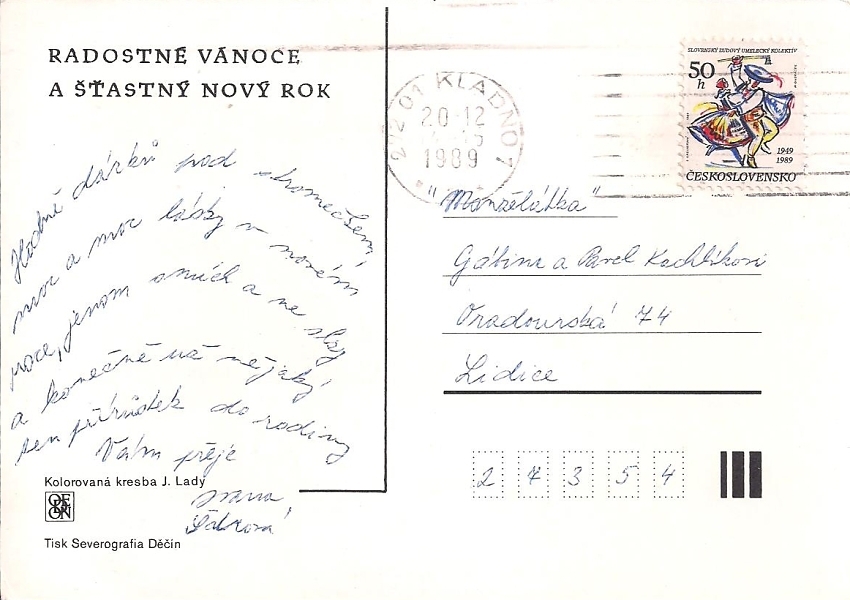 RADOSTNÉ VÁNOCE
A ŠŤASTNÝ NOVÝ ROK
Hodně dárků pod stromečkem,
moc a moc lásky v novém
roce, jenom smích a ne slzy
a konečně už nějaký
ten přírůstek do rodiny
Vám přeje
Kolorovaná kresba J. Lady
Tisk Severografia Děčín
272 01 KLADNO 1
20.12
1989
SLOVENSKÝ ĽUDOVÝ UMELECKÝ KOLEKTÍV
50
h
1949
1989
ČESKOSLOVENSKO
"Manželátka"
Gábina a Pavel
Oradourská 74
Lidice
2 7 3 5 4